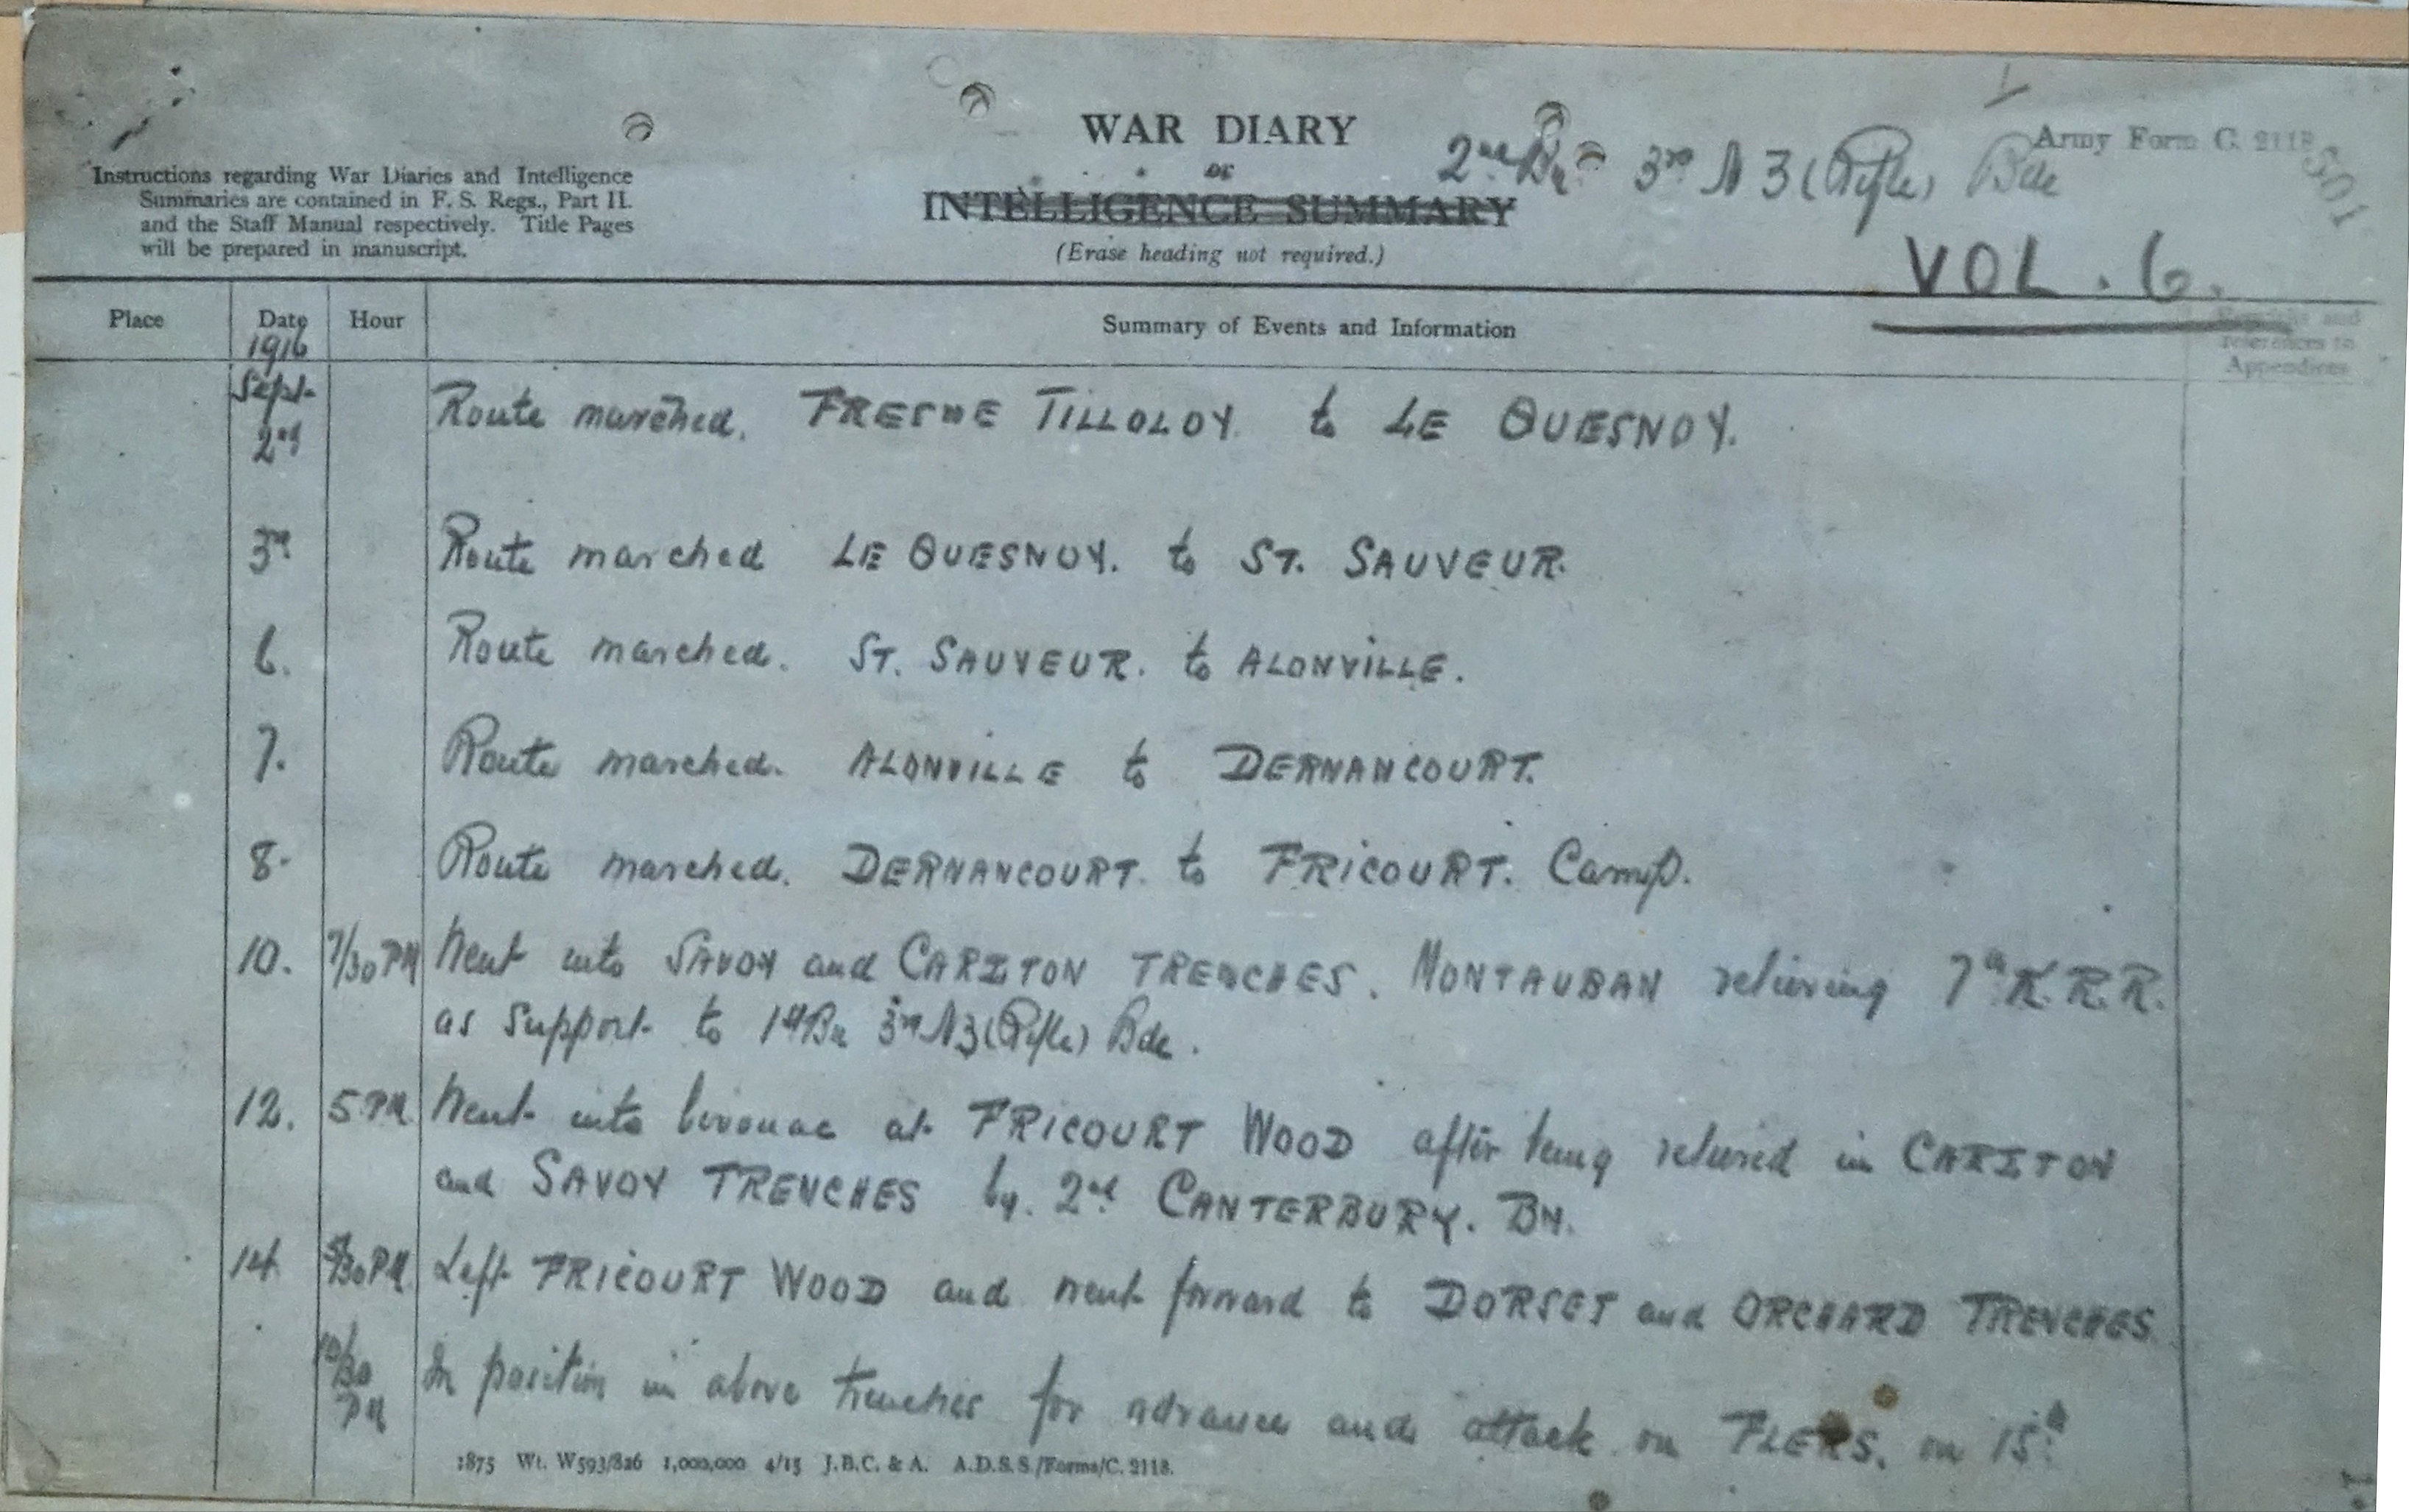 WAR DIARY
or
INTELLIGENCE SUMMARY
(Erase heading not required.)
2nd Bn 3rd N3 (Rifle) Bde
Army Form C. 2118
VOL. 6.
Instructions regarding War Diaries and Intelligence
Summaries are contained in F. S. Regs., Part II.
and the Staff Manual respectively. Title Pages
will be prepared in manuscript.
Place Date Hour Summary of Events and Information
Remarks and
references to
Appendices
1916
Sept.
2nd Route marched. FRESNE TILLOLOY. to LE QUESNOY.
3rd Route marched LE QUESNOY. to ST. SAUVEUR.
6. Route marched. ST. SAUVEUR. to ALONVILLE.
7. Route marched. ALONVILLE to DERNANCOURT.
8. Route marched. DERNANCOURT. to FRICOURT. Camp.
10. 7/30 PM Went into SAVOY and CARLTON TRENCHES. MONTAUBAN relieving 7th K.R.R.
as support to 1st Bn 3rd N3 (Rifle) Bde.
12. 5 PM. Went into bivouac at FRICOURT WOOD after being relieved in CARLTON
and SAVOY TRENCHES by. 2nd CANTERBURY. BN.
14 5/30 PM Left FRICOURT WOOD and went forward to DORSET and ORCHARD TRENCHES
10/30
PM In position in above trenches for advance and attack on FLERS. on 15th
1875 Wt. W593/826 1,000,000 4/15 J.B.C. & A. A.D.S.S./Forms/C. 2118.